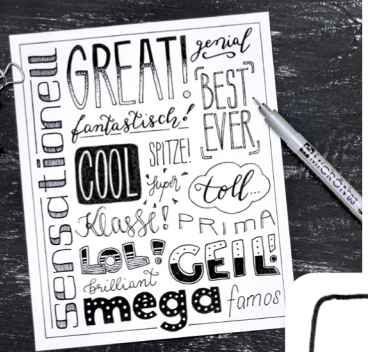 sensationell
GREAT!
genial
BEST
EVER
fantastisch!
COOL
SPITZE!
super
toll...
Klasse!
PRIMA
LOL!
GEIL!
brilliant
mega
famos
MICRON